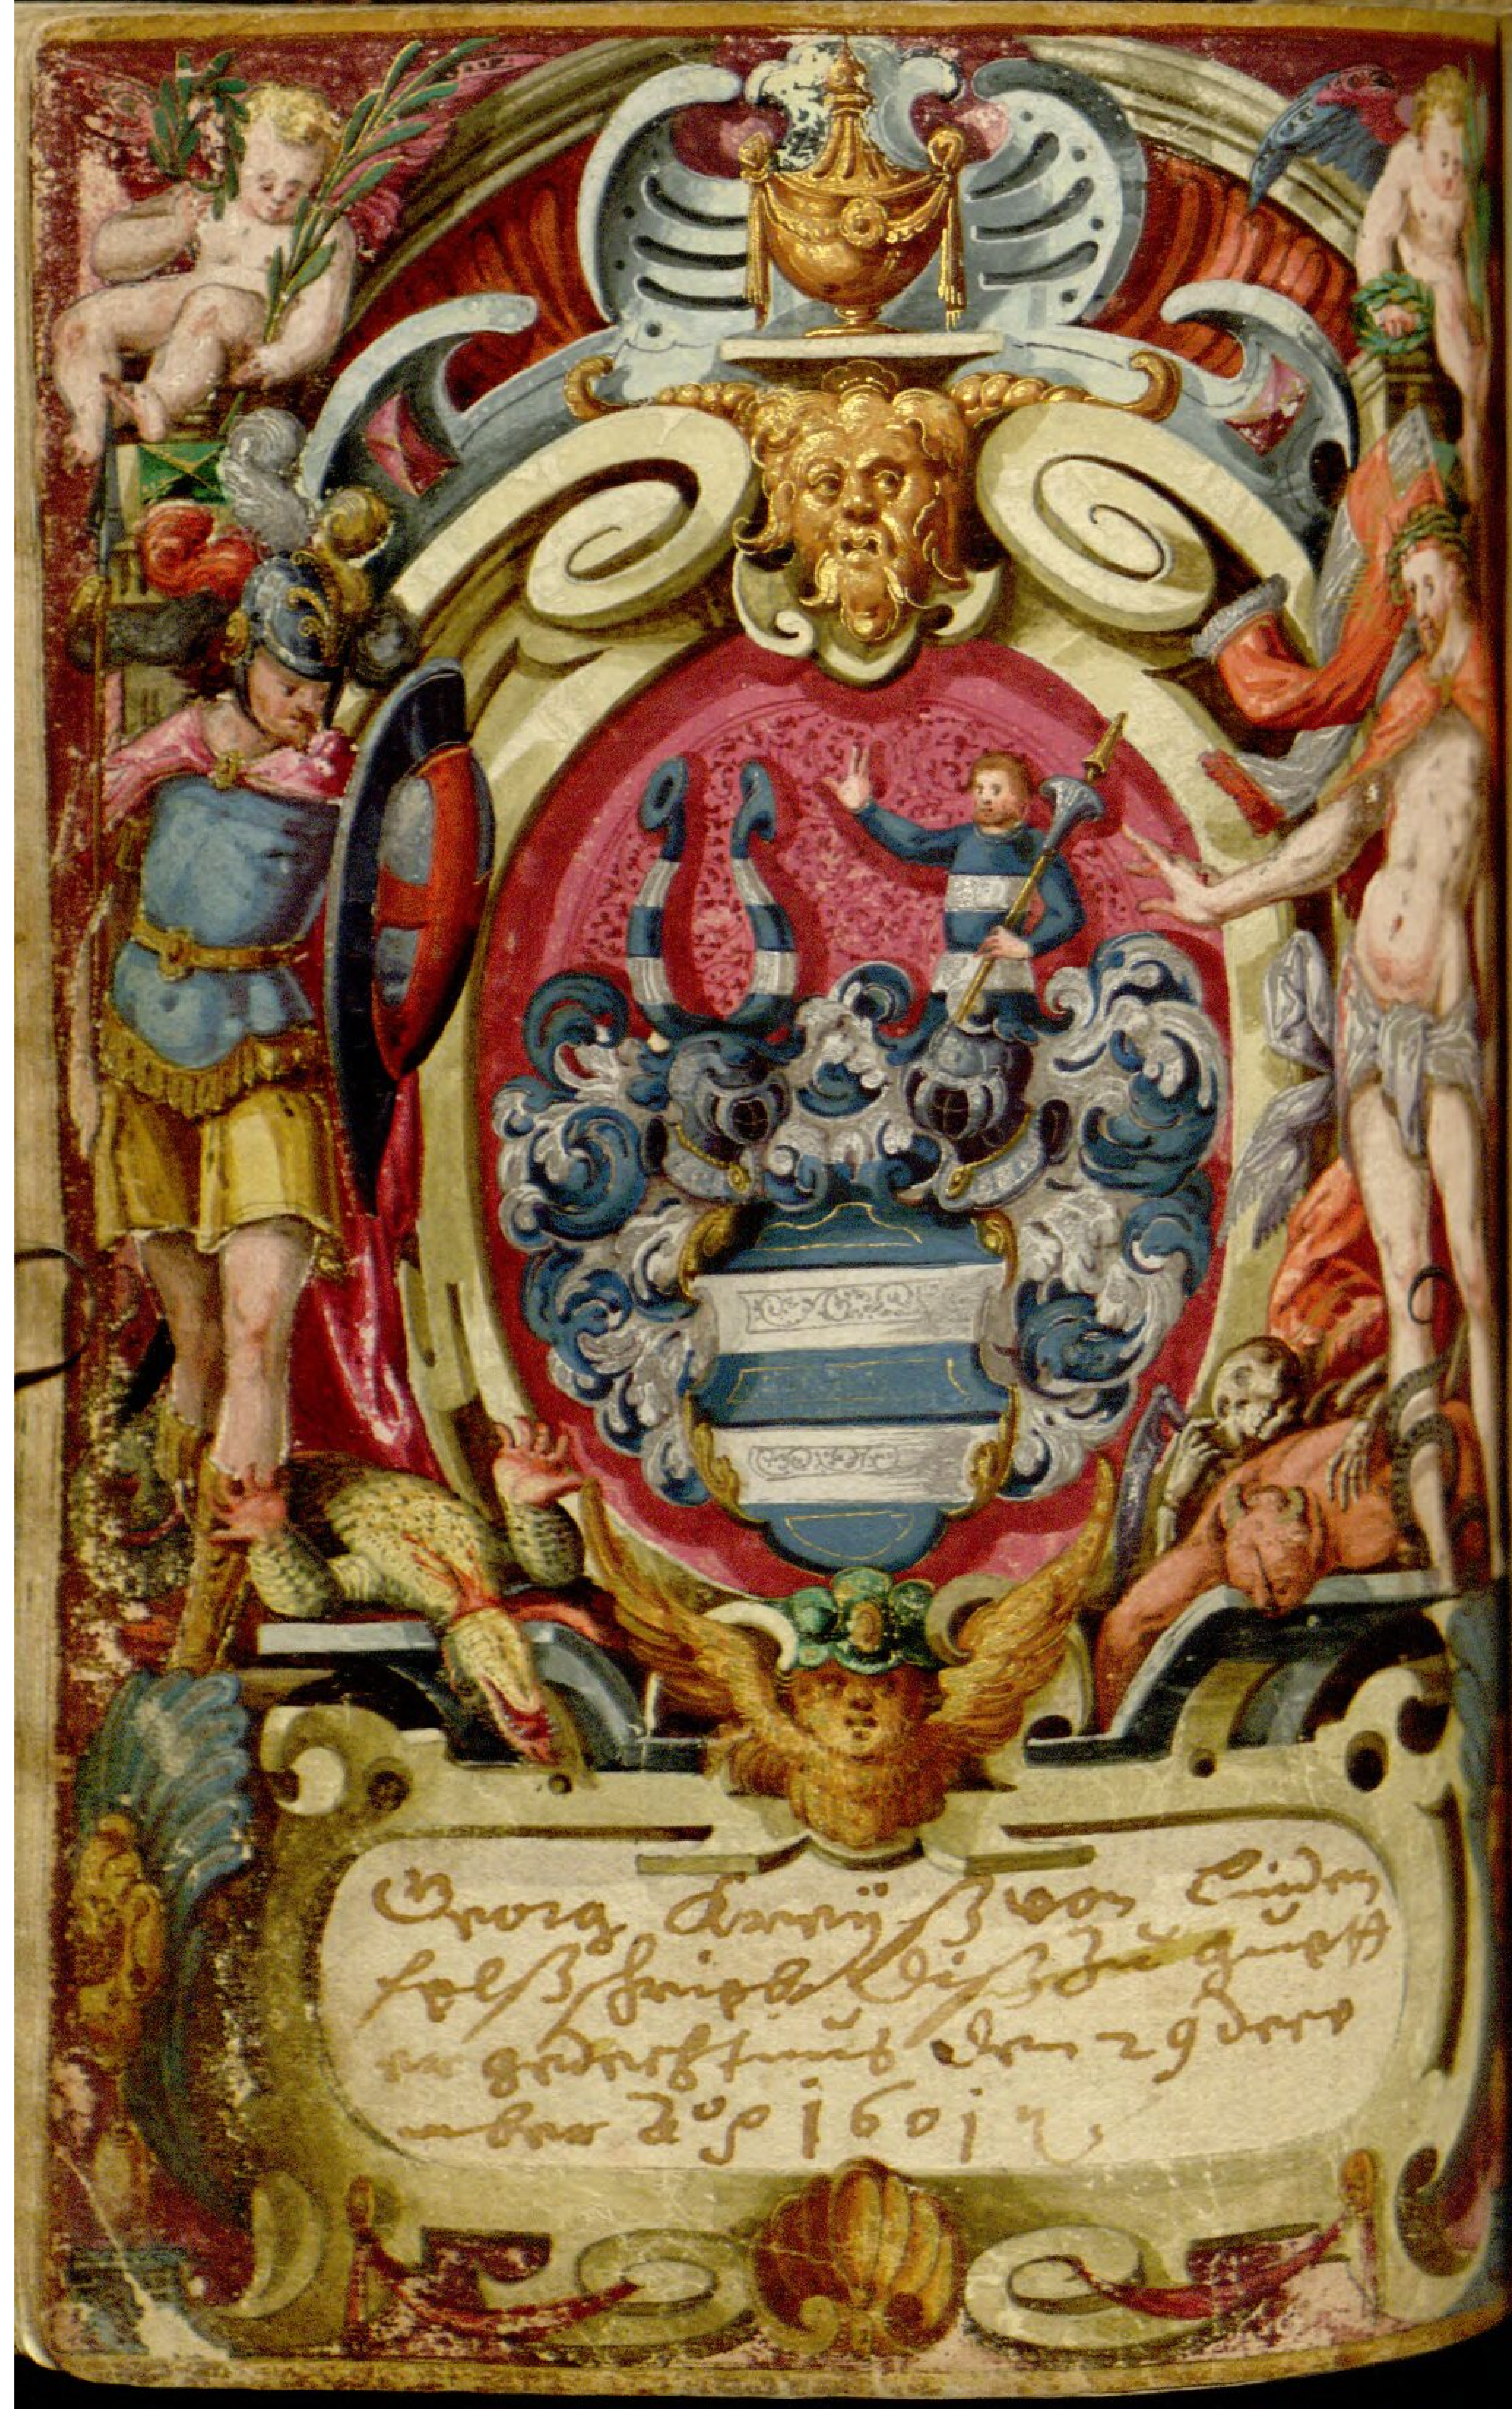 Georg Kreÿß von Linden
felß schrieb diß zu guett
er gedechtnus den 29 dece
mber Aō 1601